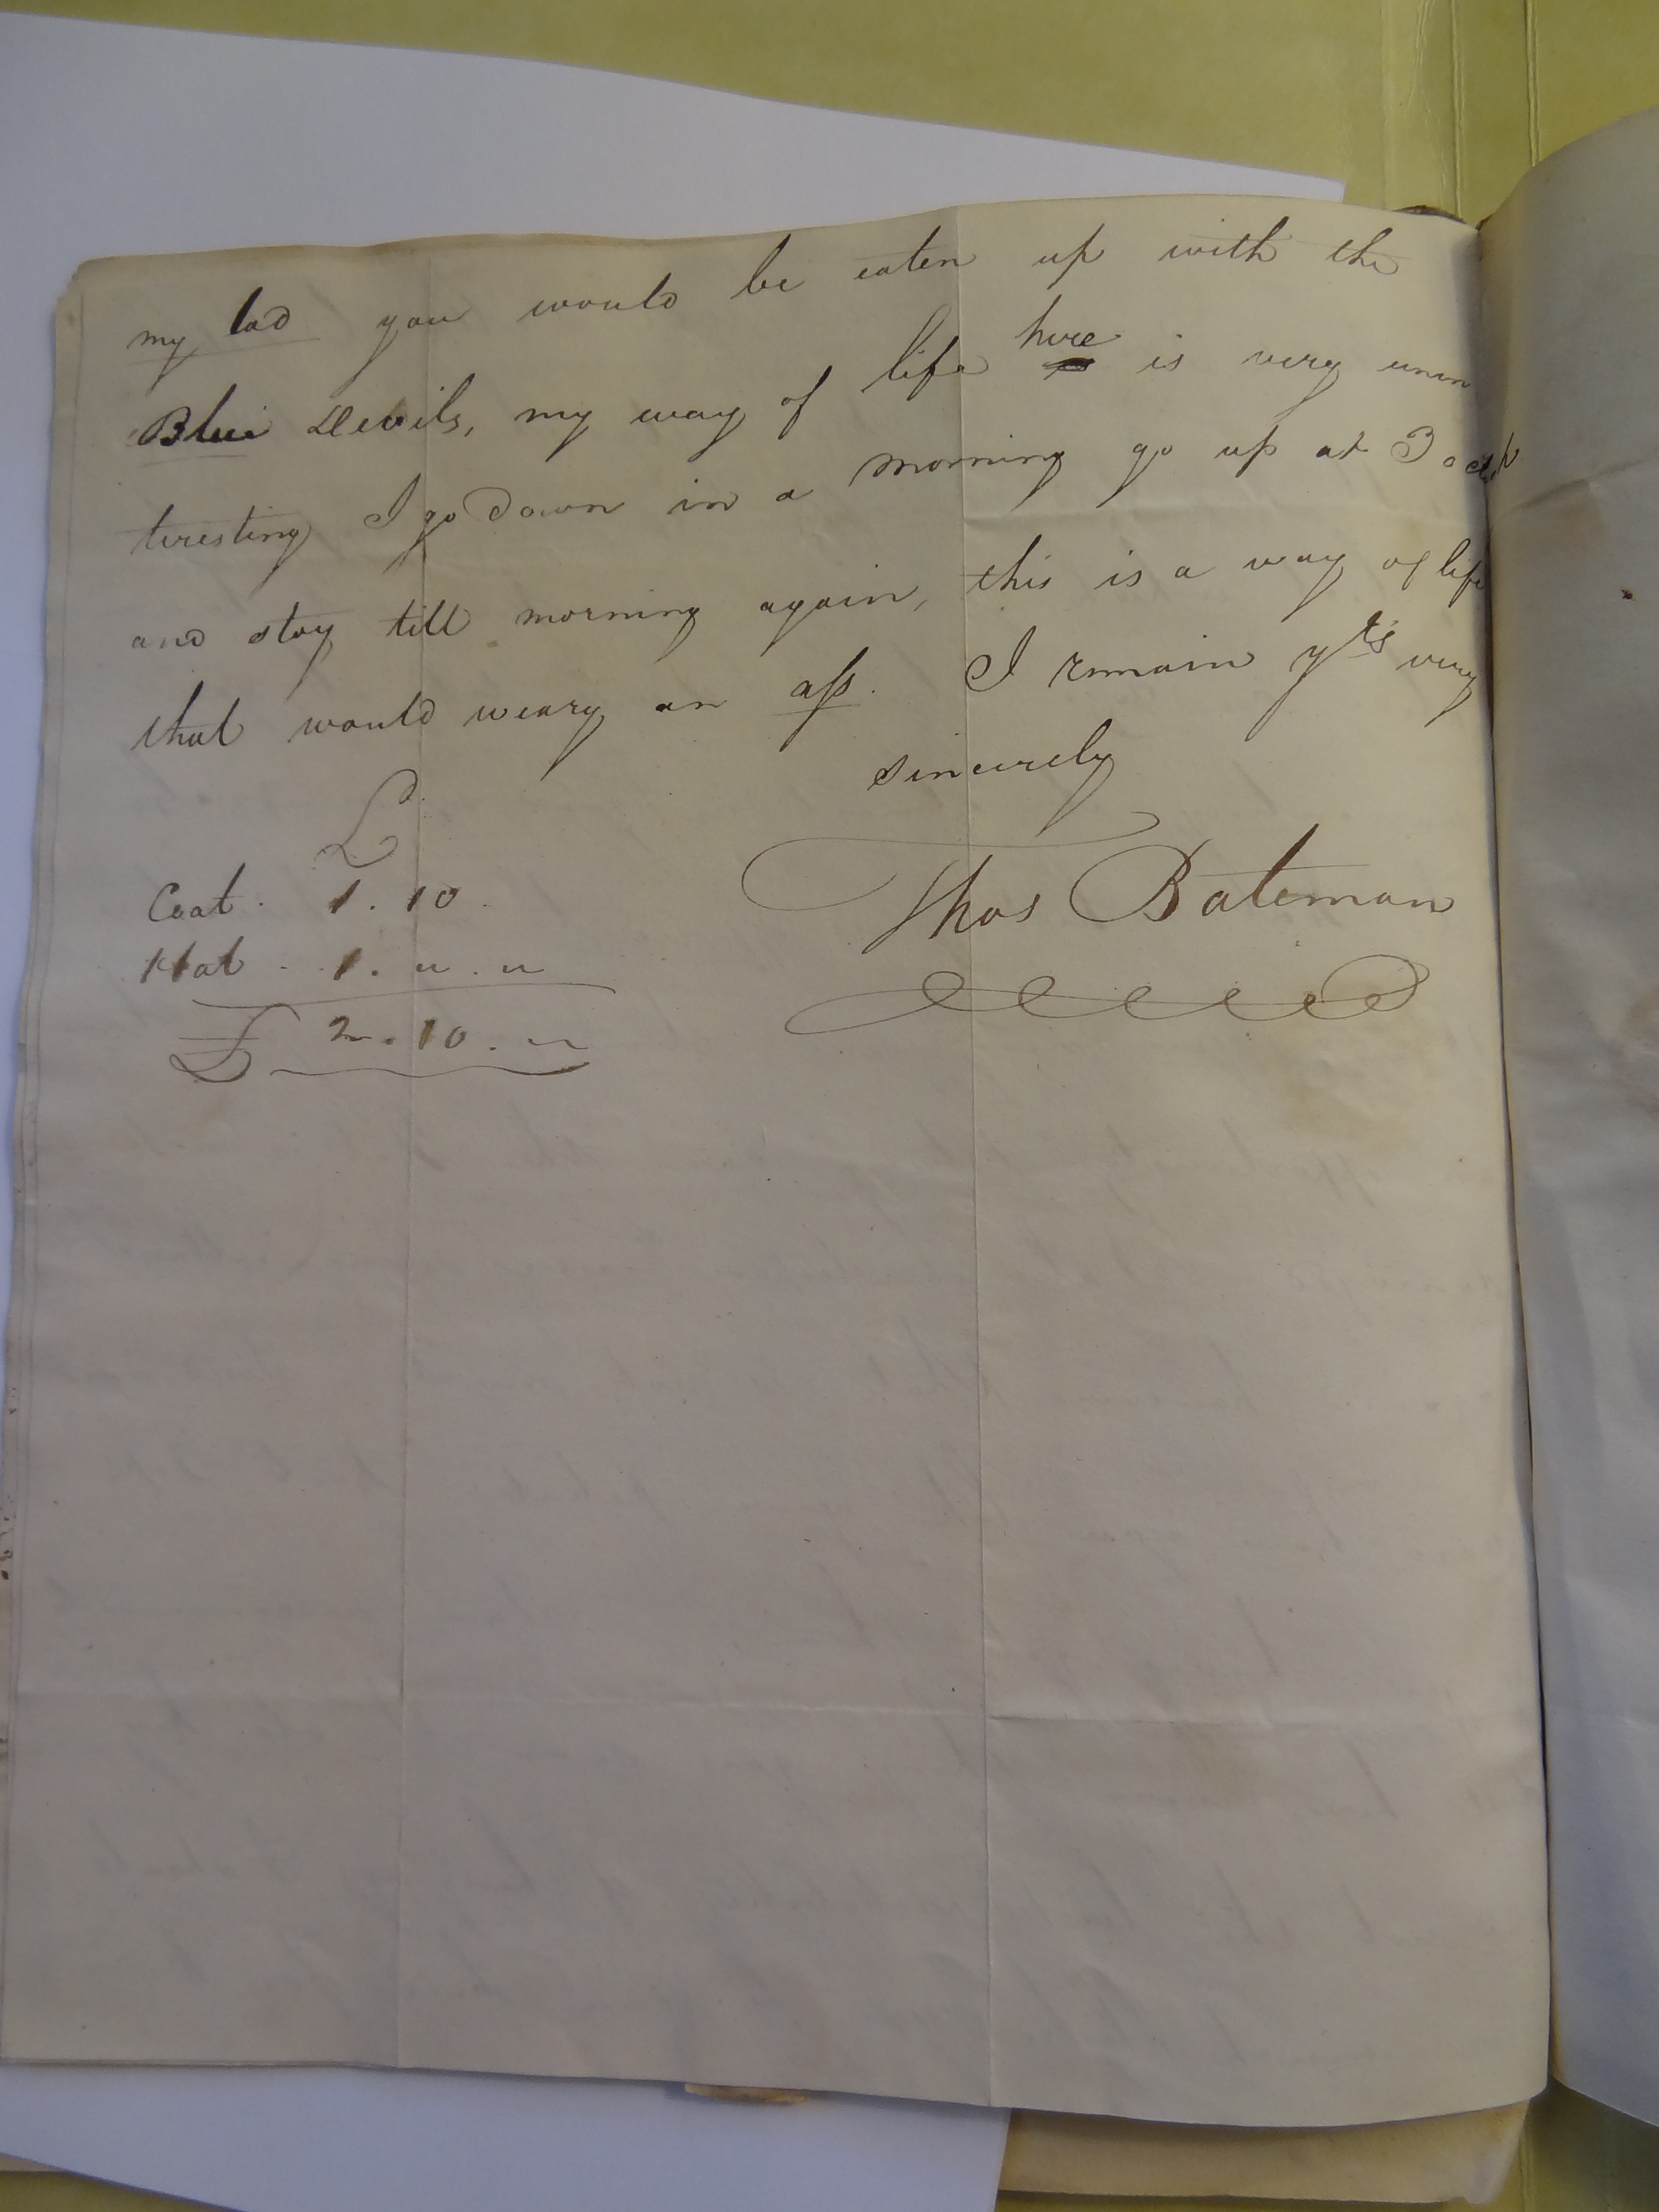 my lad you would be eaten up with the
Blue Devils, my way of life here is very unin
teresting I go down in a morning go up at 3 o clk
and stay till morning again, this is a way of life
that would weary an aſs. I remain yrs very
sincerely
Thos Bateman
£
Coat . 1 . 10 .
Hat . 1 . " . "
£ 2 . 10 . "